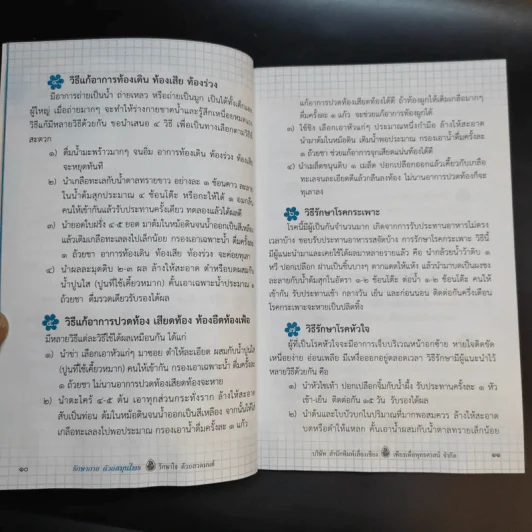 วิธีแก้อาการท้องเดิน ท้องเสีย ท้องร่วง
มีอาการถ่ายเป็นน้ำ ถ่ายเหลว หรือถ่ายเป็นมูก เป็นได้ทั้งเด็กและ
ผู้ใหญ่ เมื่อถ่ายมากๆ จะทำให้ร่างกายขาดน้ำและรู้สึกเหนื่อยหมดแรง
วิธีแก้มีหลายวิธีด้วยกัน ขอนำเสนอ ๔ วิธี เพื่อเป็นทางเลือกตาม
สะดวก
๑) ดื่มน้ำมะพร้าวมากๆ จนอิ่ม อาการท้องเดิน ท้องร่วง ท้องเสีย
จะหยุดทันที
๒) นำเกลือทะเลกับน้ำตาลทรายขาว อย่างละ ๑ ช้อนคาว ละลาย
ในน้ำต้มสุกประมาณ ๔ ช้อนโต๊ะ หรือกะให้ได้ ๑
คนให้เข้ากันแล้วรับประทานครั้งเดียว ทดลองแล้วได้ผลดี
๓) นำยอดใบฝรั่ง ๔-๕ ยอด มาต้มในหม้อดินจนน้ำออกเป็นสีเหลือง
แล้วเติมเกลือทะเลลงไปเล็กน้อย กรองเอาเฉพาะน้ำ ดื่มครั้ง
๑ ถ้วยชา อาการท้องเดิน ท้องเสีย ท้องร่วง จะค่อยทุเลา
๔) นำผลละมุดดิบ ๒-๓ ผล ล้างให้สะอาด ตำหรือบดผสมกับ
น้ำปูนใส (ปูนที่ใช้เคี้ยวหมาก) คั้นเอาเฉพาะน้ำประมาณ ๑
ถ้วยชา ดื่มรวดเดียวรับรองได้ผล
วิธีแก้อาการปวดท้อง เสียดท้อง ท้องอืดท้องเฟ้อ
มีหลายวิธีแต่ละวิธีใช้ได้ผลเหมือนกัน ได้แก่
๑) นำข่า เลือกเอาหัวแก่ๆ มาซอย ตำให้ละเอียด ผสมกับน้ำปูนใส
(ปูนที่ใช้เคี้ยวหมาก) คนให้เข้ากัน กรองเอาเฉพาะน้ำ ดื่มครั้งละ
๑ ถ้วยชา ไม่นานอาการปวดท้องเสียดท้องจะหาย
๒) นำตะไคร้ ๔-๕ ต้น เอาทุกส่วนกระทั่งราก ล้างให้สะอาด
สับเป็นท่อน ต้มในหม้อดินจนน้ำออกเป็นสีเหลือง จากนั้นให้
เกลือทะเลลงไปพอประมาณ กรองเอาน้ำดื่มครั้งละ ๑ แก้ว
๑๐ รักษากาย ด้วยสมุนไพร รักษาใจ ด้วยสวดมนต์
แก้อาการปวดท้องเสียดท้องได้ดี ถ้าท้องผูกให้เติมเกลือมากๆ
ดื่มครั้งละ ๑ แก้ว จะช่วยแก้อาการท้องผูกได้
๓) ใช้ขิง เลือกเอาหัวแก่ๆ ประมาณหนึ่งกำมือ ล้างให้สะอาด
นำมาต้มในหม้อดิน เติมน้ำพอประมาณ กรองเอาน้ำดื่มครั้งละ
๑ ถ้วยชา ช่วยแก้อาการจุกเสียดแน่นท้องได้ดี
๔) นำเมล็ดขนุนดิบ ๑ เมล็ด ปอกเปลือกออกแล้วเคี้ยวกับเกลือ
ทะเลจนละเอียดดีแล้วกลืนลงท้อง ไม่นานอาการปวดท้องก็จะ
ทุเลาลง
วิธีรักษาโรคกระเพาะ
โรคนี้มีผู้เป็นกันจำนวนมาก เกิดจากการรับประทานอาหารไม่ตรง
เวลาบ้าง ชอบรับประทานอาหารรสจัดบ้าง การรักษาโรคกระเพาะ วิธีนี้
มีผู้แนะนำและเคยใช้ได้ผลมาหลายรายแล้ว คือ นำกล้วยน้ำว้าดิบ ๑
หวี ปอกเปลือก ฝานเป็นชิ้นบางๆ ตากแดดให้แห้ง แล้วนำมาบดเป็นผงชง
ละลายกับน้ำต้มสุกในอัตรา ๑-๒ ช้อนโต๊ะ ต่อน้ำ ๑-๒ ช้อนโต๊ะ คนให้
เข้ากัน รับประทานเช้า กลางวัน เย็น และก่อนนอน ติดต่อกันครึ่งเดือน
โรคกระเพาะจะหายเป็นปลิดทิ้ง
วิธีรักษาโรคหัวใจ
ผู้ที่เป็นโรคหัวใจจะมีอาการเจ็บบริเวณหน้าอกซ้าย หายใจติดขัด
เหนื่อยง่าย อ่อนเพลีย มีเหงื่อออกอยู่ตลอดเวลา วิธีรักษามีผู้แนะนำไว้
หลายวิธีด้วยกัน คือ
๑) นำหัวไชเท้า ปอกเปลือกจิ้มกับน้ำผึ้ง รับประทานครั้งละ ๑ หัว
เช้า-เย็น ติดต่อกัน ๑๕ วัน รับรองได้ผล
๒) นำต้นและใบบัวบกในปริมาณที่มากพอสมควร ล้างให้สะอาด
บดหรือตำให้แหลก คั้นเอาน้ำผสมกับน้ำตาลทรายเล็กน้อย
บริษัท สำนักพิมพ์เลี่ยงเชียง เพียรเพื่อพุทธศาสน์ จำกัด ๑๑